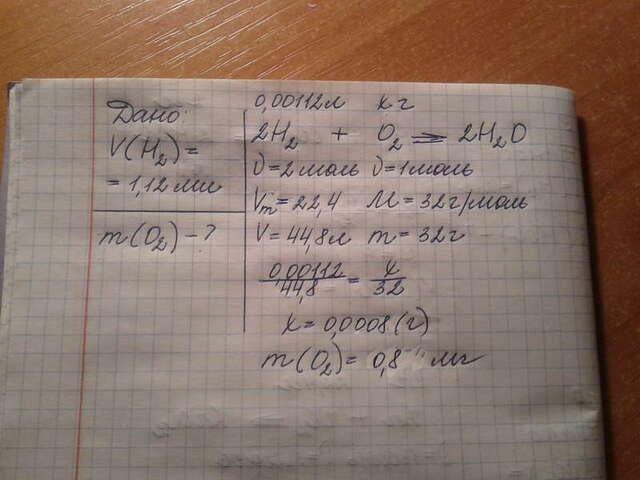 Дано:
V(H₂)=
= 1,12 мл
m(O₂) - ?
0,00112л x г
2H₂ + O₂ = 2H₂O
ν=2моль ν=1моль
Vm=22,4 M=32г/моль
V=44,8л m=32г
0,00112/44,8 = x/32
x=0,0008(г)
m(O₂)= 0,8 мг